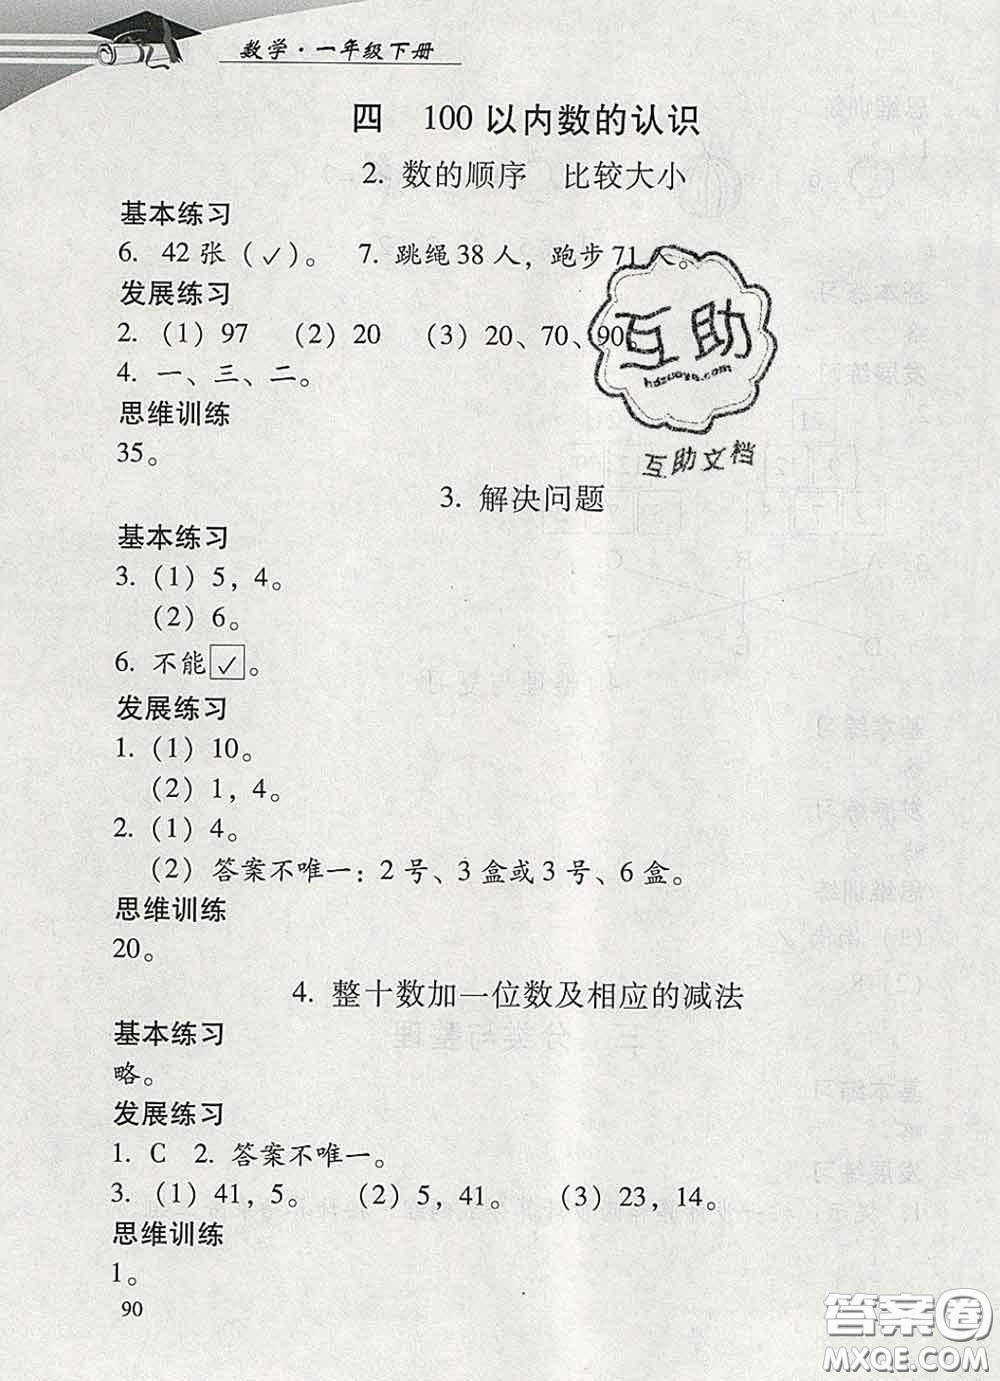 数学·一年级下册
四 100以内数的认识
2. 数的顺序 比较大小
基本练习
6. 42张（✓）。 7. 跳绳38人，跑步71人。
发展练习
2.（1）97 （2）20 （3）20、70、90。
4. 一、三、二。
思维训练
35。
互助
hdzuoye.com
互助文档
3. 解决问题
基本练习
3.（1）5，4。
（2）6。
6. 不能✓。
发展练习
1.（1）10。
（2）1，4。
2.（1）4。
（2）答案不唯一：2号、3盒或3号、6盒。
思维训练
20。
4. 整十数加一位数及相应的减法
基本练习
略。
发展练习
1. C 2. 答案不唯一。
3.（1）41，5。 （2）5，41。 （3）23，14。
思维训练
1。
90
答案圈
MXQE.COM